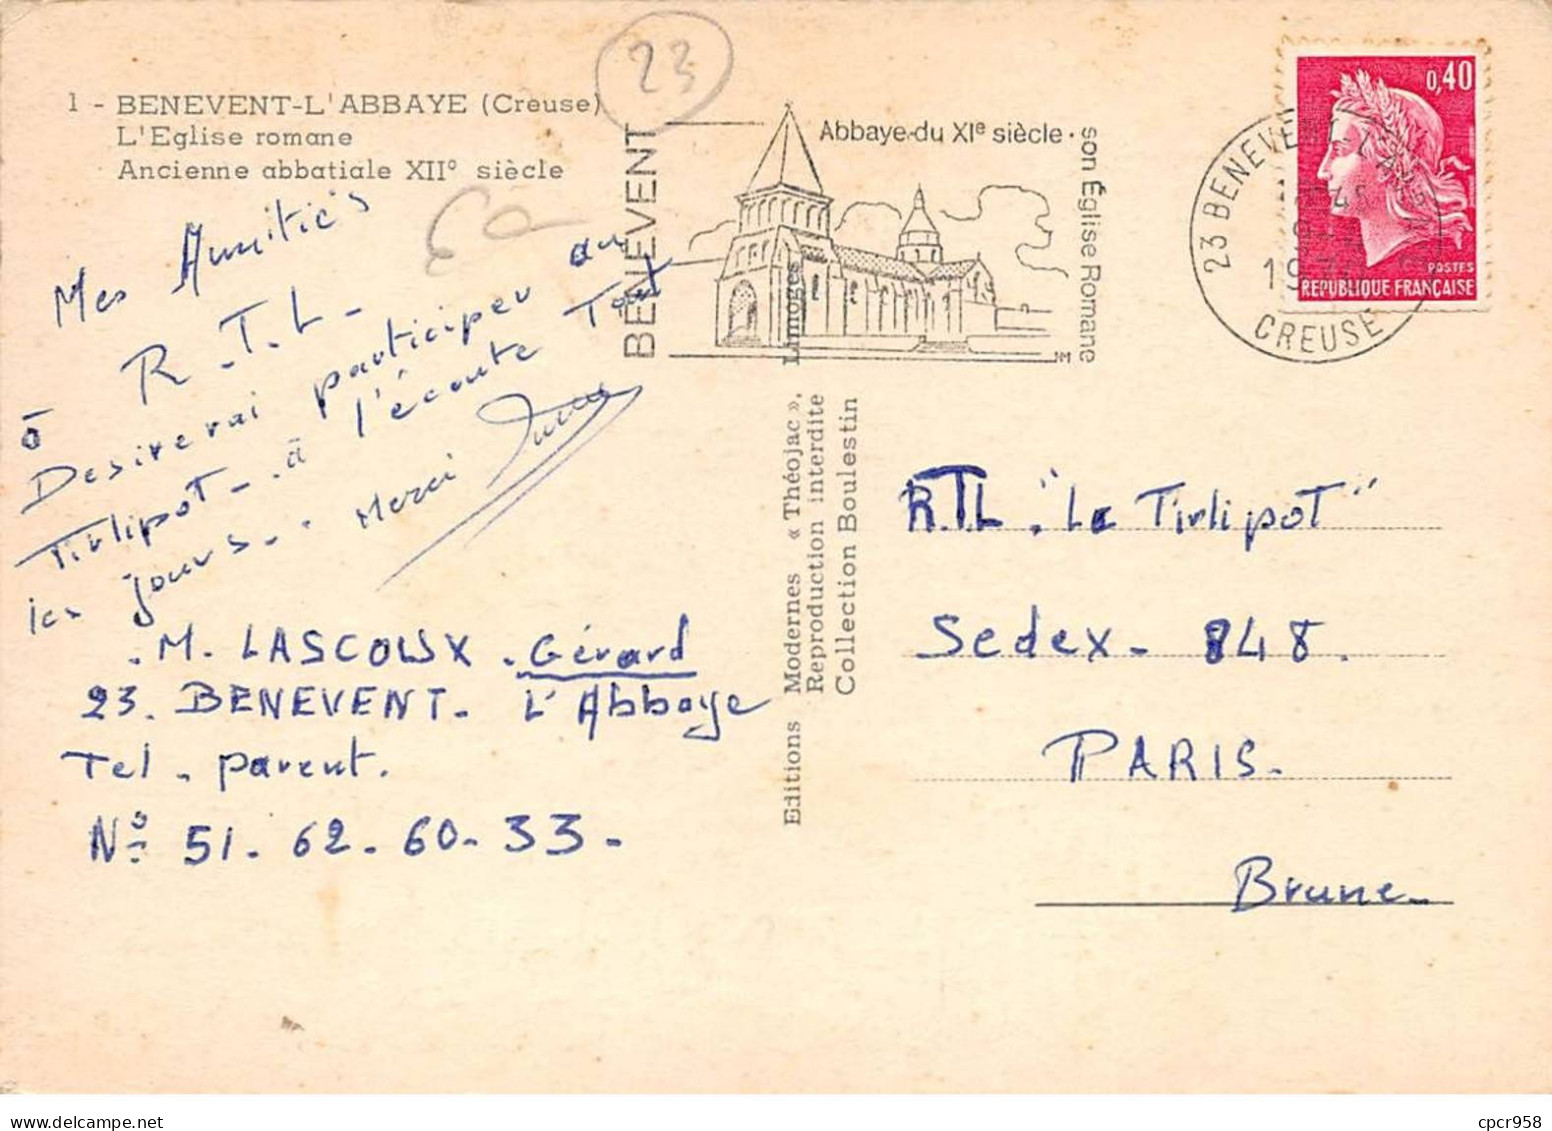 23
1 - BENEVENT-L'ABBAYE (Creuse)
L'Eglise romane
Ancienne abbatiale XIIº siècle
BENEVENT
Abbaye du XIe siècle.
son Église Romane
0,40
POSTES
RÉPUBLIQUE FRANÇAISE
23 BENEVENT L'ABBAYE
CREUSE
Mes Amitiés
à R.T.L-
Desirerai participer au
Tirlipot- à l'écoute Tout
les jours. Merci
M. LASCOUX . Gérard
23. BENEVENT. L'Abbaye
Tel. parent.
Nº 51. 62. 60. 33.
Editions Modernes « Théojac », Limoges
Reproduction interdite
Collection Boulestin
R.T.L. "Le Tirlipot"
Sedex- 848.
PARIS.
Brune.
cpcr958